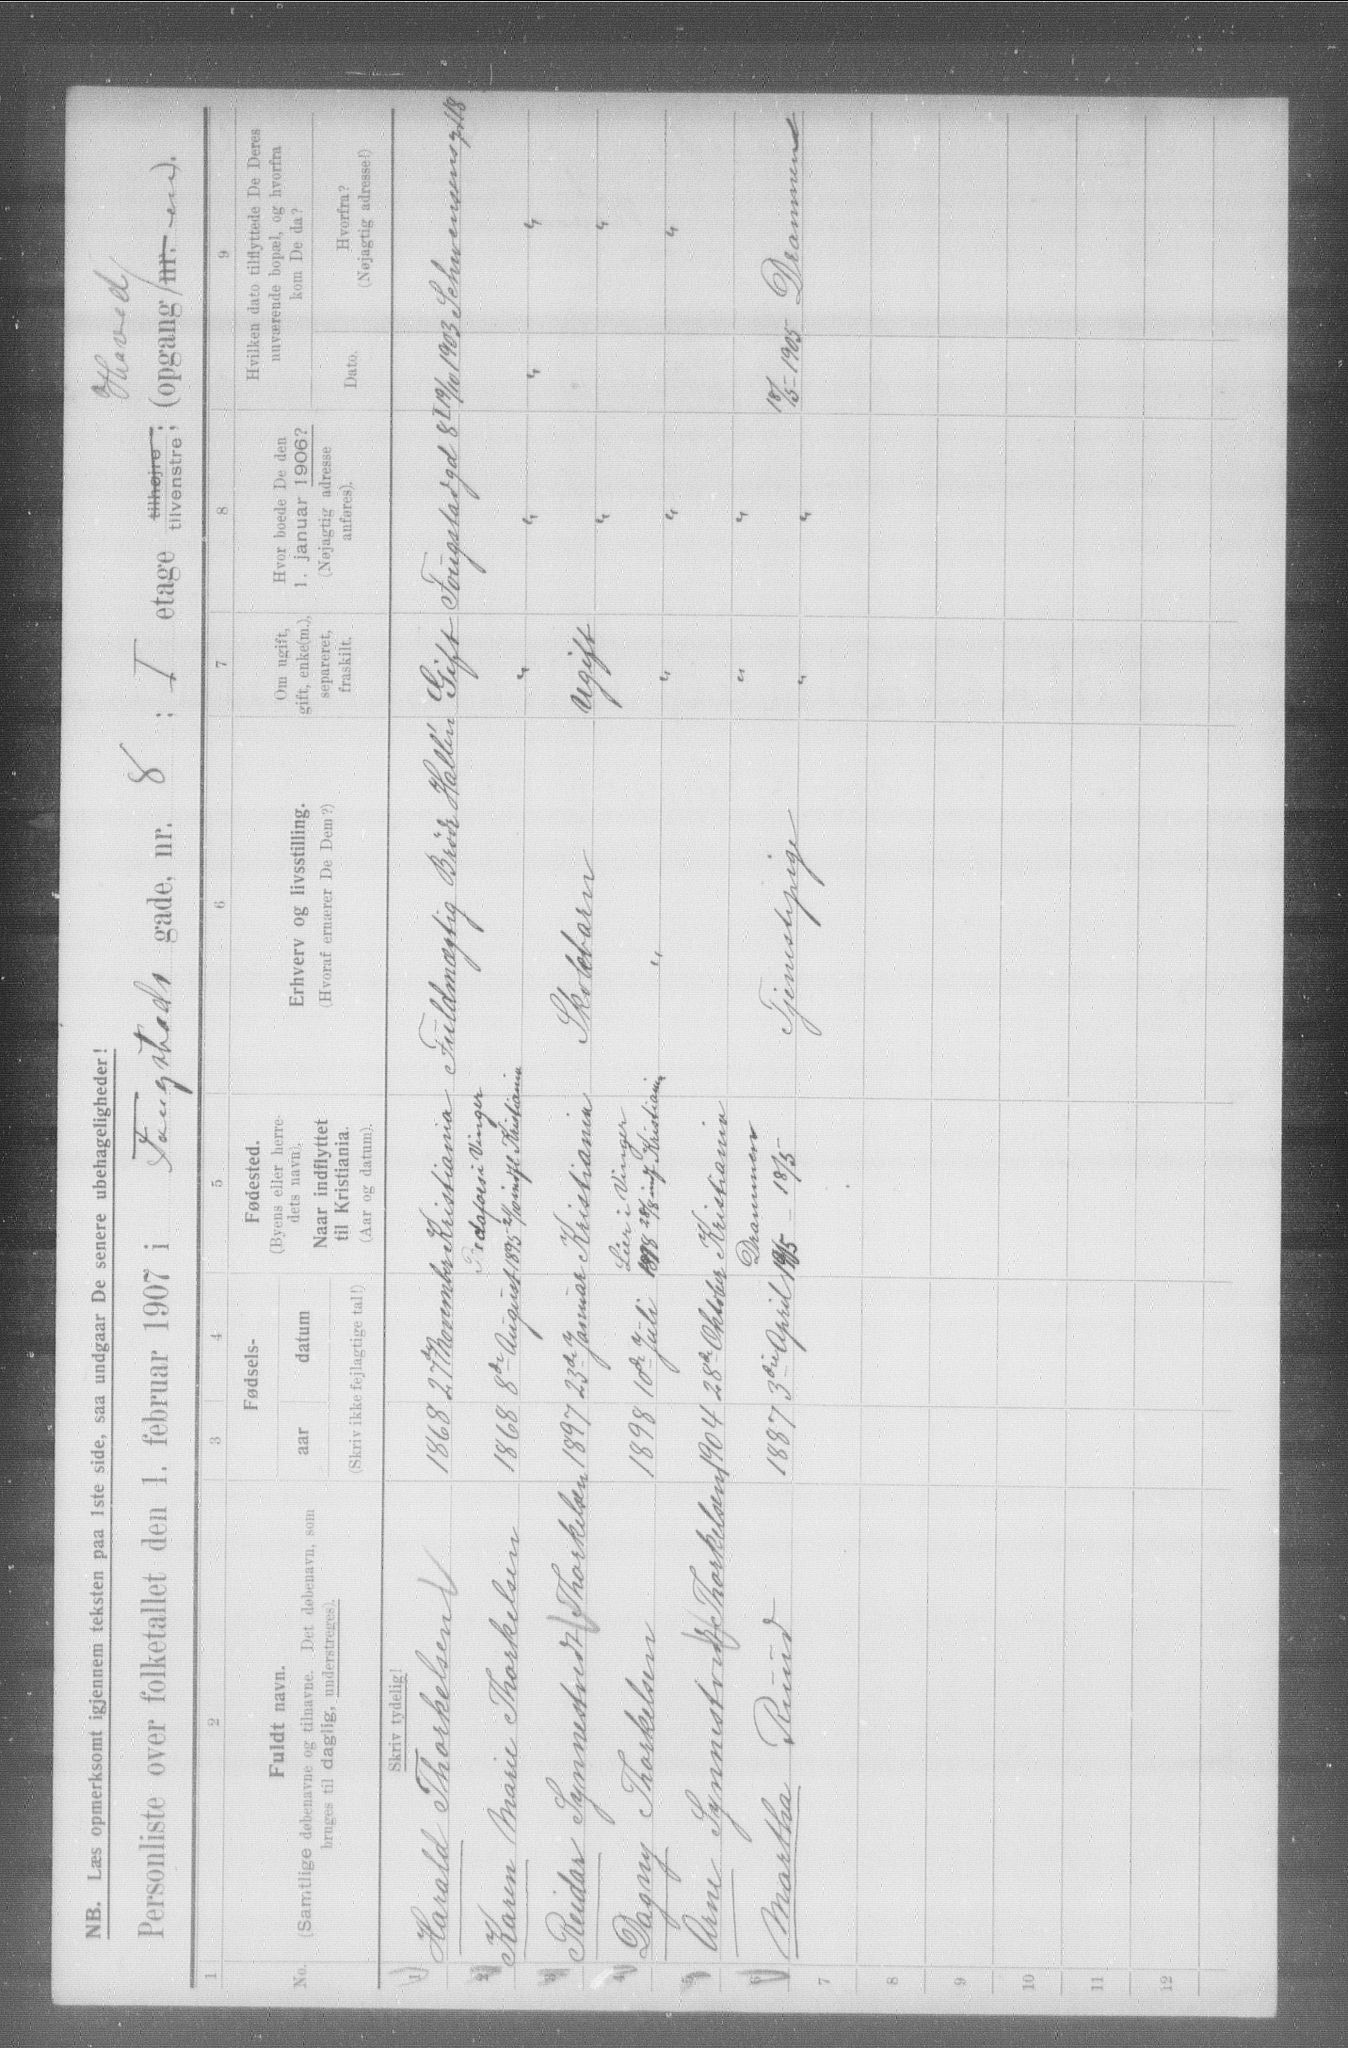 NB. Læs opmerksomt igjennem teksten paa 1ste side, saa undgaar De senere ubehageligheder!
Hoved
Personliste over folketallet den 1. februar 1907 i Fougstads gade, nr. 8 ; I etage tilhøire ; tilvenstre ; (opgang nr. en).
1 2 3 4 5 6 7 8 9
No.
Fuldt navn.
(Samtlige døbenavne og tilnavne. Det døbenavn, som
bruges til daglig, understreges).
Fødsels-
aar datum
(Skriv ikke fejlagtige tal!)
Fødested.
(Byens eller herre-
dets navn).
Naar indflyttet
til Kristiania.
(Aar og datum).
Erhverv og livsstilling.
(Hvoraf ernærer De Dem?)
Om ugift,
gift, enke(m.),
separeret,
fraskilt.
Hvor boede De den
1. januar 1906?
(Nøjagtig adresse
anføres).
Hvilken dato tilflyttede De Deres
nuværende bopæl, og hvorfra
kom De da?
Dato.
Hvorfra?
(Nøjagtig adresse!)
Skriv tydelig!
1 Harald Thorkelsen 1868 27de November Kristiania Fuldmægtig Brødr Hallén Gift Fougstadgd 8 I 19/10 1903 Schwensensgt 18
2 Karen Marie Thorkelsen 1868 8de August i Vinger 1895 indfl Kristiania " " " "
3 Reidar Synnestvedt Thorkelsen 1897 23de Januar Kristiania Skolebarn Ugift " "
4 Dagny Thorkelsen 1898 10de Juli Lier i Vinger 1898 indf Kristiania " " " "
5 Arne Synnestvedt Thorkelsen 1904 28de Oktober Kristiania " "
6 Martha Ruud 1887 3die April Drammen 1905 – 18/5 Tjenestepige " " 18/5 – 1905 Drammen
7
8
9
10
11
12